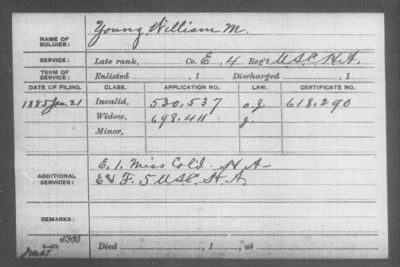 NAME OF SOLDIER: Young, William M.
SERVICE: Late rank, Co. E, 4 Reg't U.S.C.H.A.
TERM OF SERVICE: Enlisted , 1 Discharged , 1
DATE OF FILING. CLASS. APPLICATION NO. LAW. CERTIFICATE NO.
1885 Jan. 21 Invalid, 530.537 618.290
Widow, 698.411
Minor,
ADDITIONAL SERVICES: E, 1. Miss Col'd. H A
E & F. 5 U.S.C. H.A.
REMARKS:
Died , 1 , at